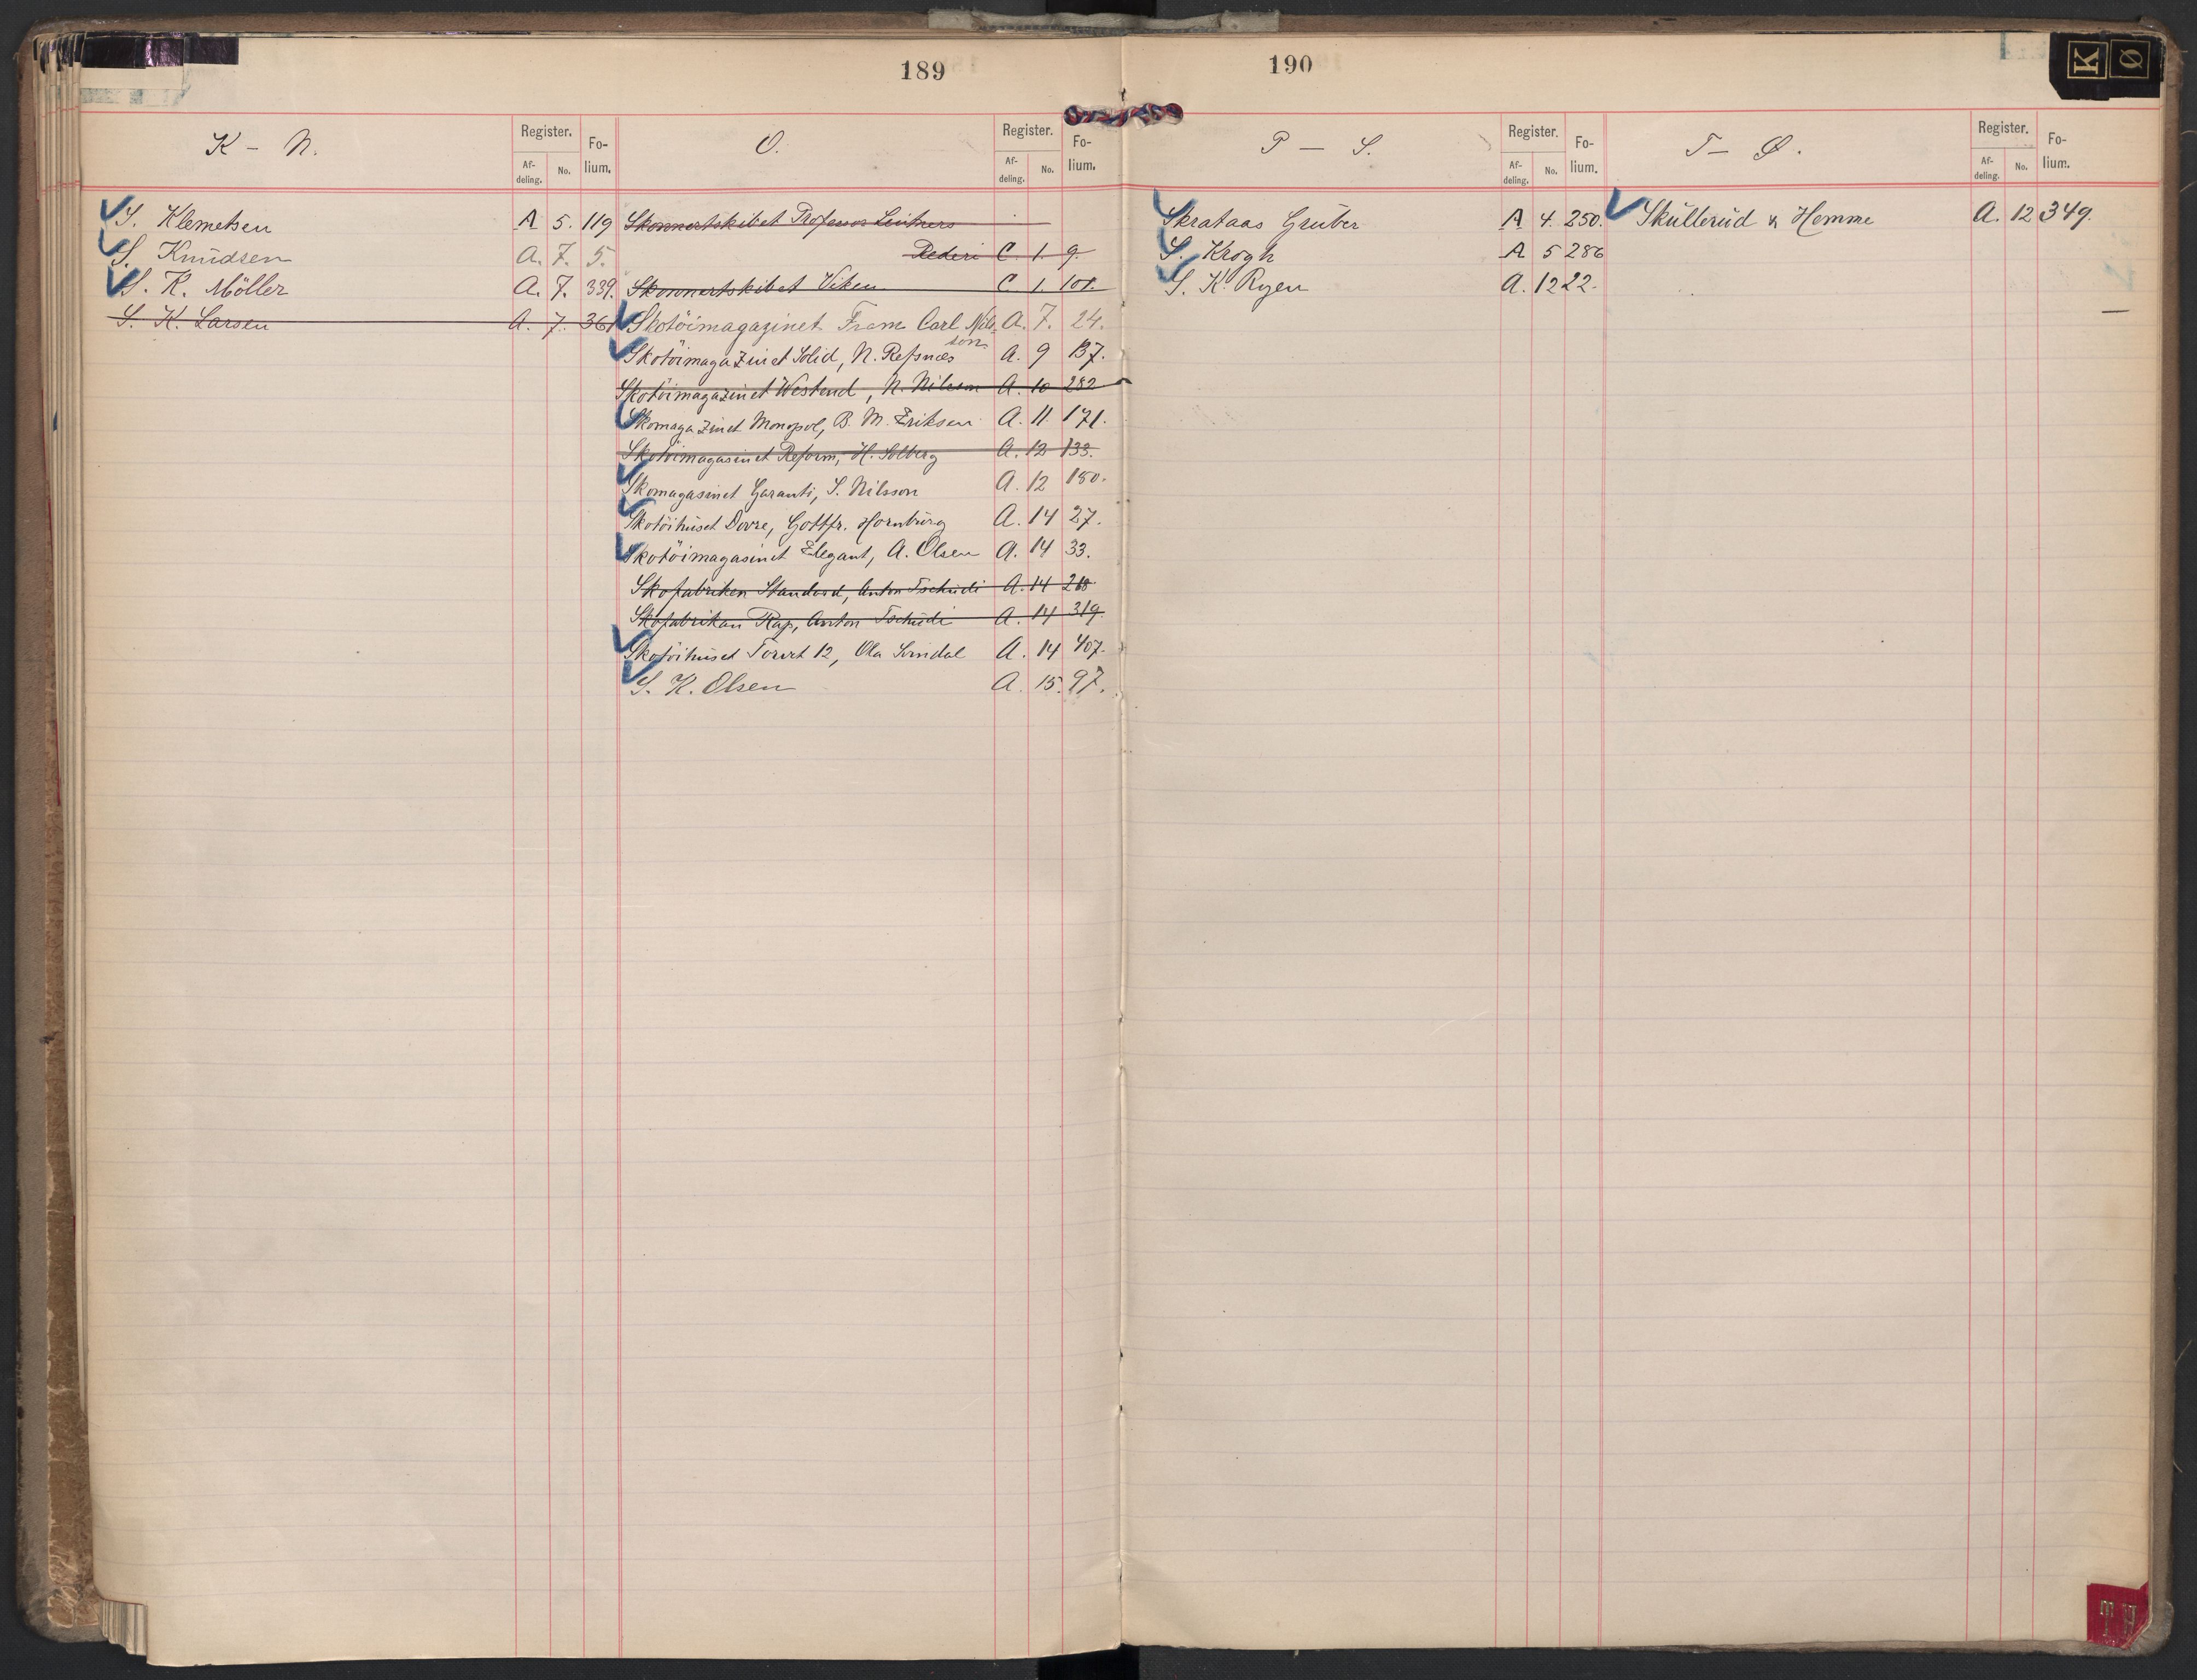 189
K - N.
Register.
Af-
deling.
No.
Fo-
lium.
S. Klemetsen A 5. 119
S. Knudsen A. 7. 5.
S. K. Möller A. 7. 339.
S. K. Larsen A. 7. 361
O.
Register.
Af-
deling.
No.
Fo-
lium.
Skonnertskibet Professor
Rederi C. 1. 9.
Skonnertskibet Viken C. 1. 101.
Skotöimagazinet Fram Carl Nils- A. 7. 24.
son
Skotöimagazinet Solid, N. Refsnæs A. 9 137.
Skotöimagazinet Westend, N. Nilsson A. 10 282
Skomagazinet Monopol, B. M. Eriksen A. 11. 171.
Skotöimagasinet Reform, H. Solberg A. 12 133.
Skomagasinet Garanti, S. Nilsson A. 12 180.
Skotöihuset Dovre, Gottfr. Hornburg A. 14 27.
Skotöimagasinet Elegant, A. Olsen A. 14 33.
Skofabriken Standard, Anton Tschudi A. 14
Skofabrikan Rap, Anton Tschudi A. 14 319.
Skotöihuset Torvet 12, Ola A. 14 407.
S. K. Olsen A. 15. 97.
190
P - S.
Register.
Af-
deling.
No.
Fo-
lium.
Skrataas Gruber A 4. 250.
S. Krogh A 5 286
S. K. Ryen A. 12 22.
T - Ø.
Register.
Af-
deling.
No.
Fo-
lium.
Skullerud & Hemme A. 12 349.
K Ø
T